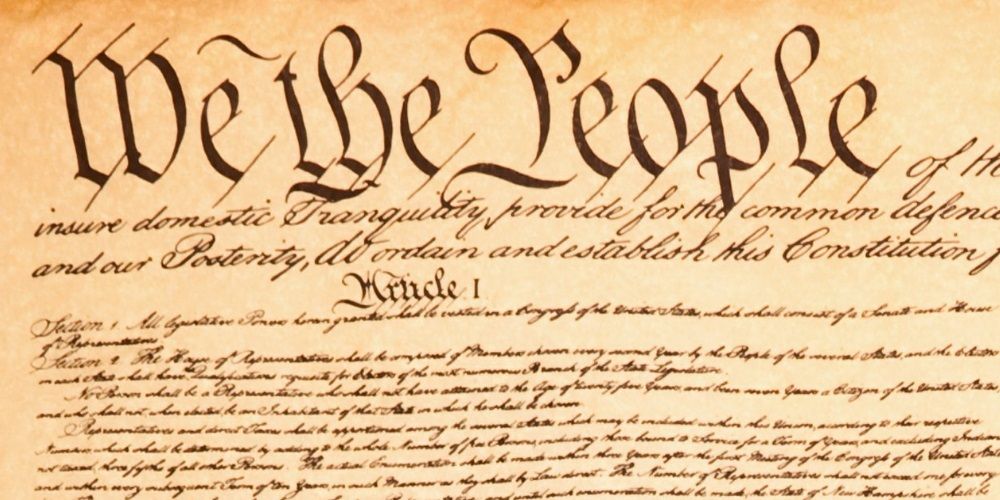 We the People of the
insure domestic Tranquility, provide for the common defence
and our Posterity, do ordain and establish this Constitution f
Article I
Section 1 All legislative Powers herein granted shall be vested in a Congress of the United States, which shall consist of a Senate and House
of Representatives
Section 2 The House of Representatives shall be composed of Members chosen every second Year by the People of the several States, and the Electors
in each State shall have Qualifications requisite for Electors of the most numerous Branch of the State Legislature.
No Person shall be a Representative who shall not have attained to the Age of twenty five Years, and been seven Years a Citizen of the United States
and who shall not, when elected, be an Inhabitant of that State in which he shall be chosen
Representatives and direct Taxes shall be apportioned among the several States which may be included within this Union, according to their respective
Numbers, which shall be determined by adding to the whole Number of free Persons, including those bound to Service for a Term of Years, and excluding Indians
not taxed, three fifths of all other Persons. The actual Enumeration shall be made within three Years after the first Meeting of the Congress of the United States
and within every subsequent Term of ten Years, in such Manner as they shall by Law direct. The Number of Representatives shall not exceed one for every
such enumeration shall be made, the State of New Hampshire shall be